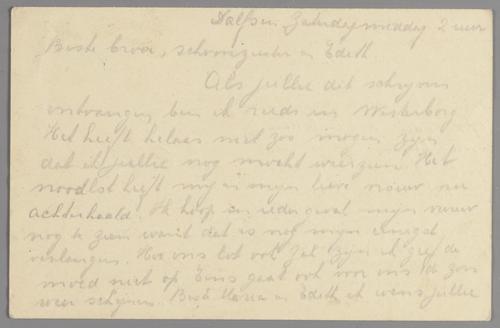 Dalfsen Zaterdagmiddag 2 uur
Beste broer, schoonzuster en Edith
Als jullie dit schrijven
ontvangen ben ik reeds in Westerborg
Het heeft helaas niet zoo mogen zijn
dat ik jullie nog mocht weerzien. Het
noodlot heeft mij en mijn lieve vrouw nu
achterhaald. Ik hoop in ieder geval mijn vrouw
nog te zien want dat is nog mijn eenigst
verlangen. Hoe ons lot ook zal zijn ik geef de
moed niet op. Eens gaat ook voor ons de zon
weer schijnen. Beste Maria en Edith ik wens jullie